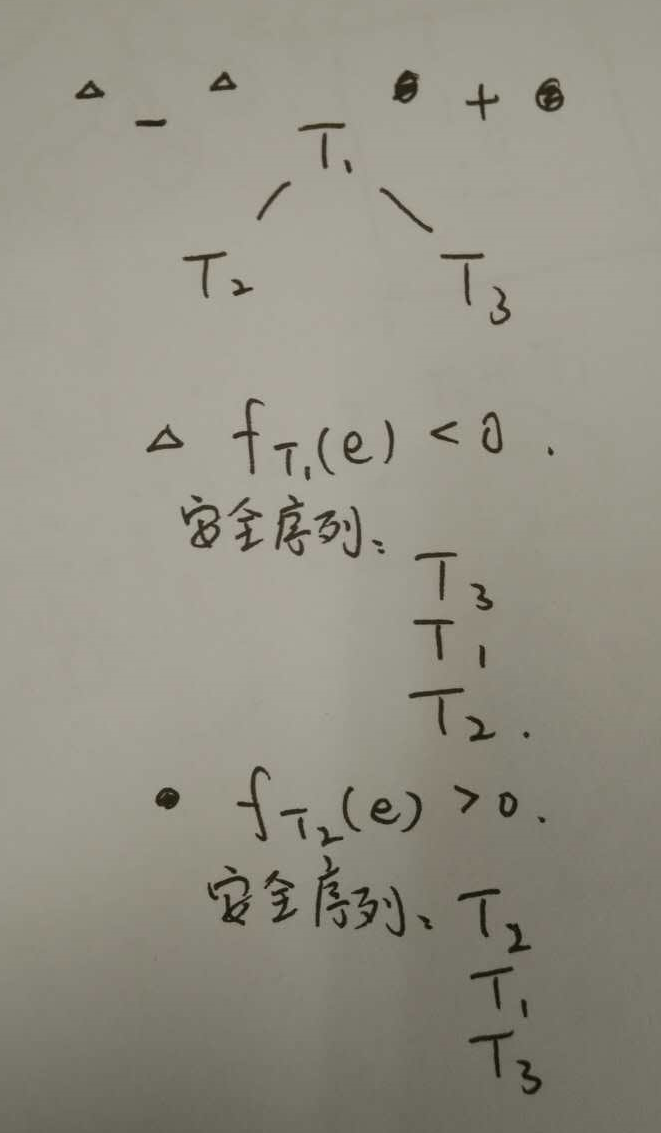 △ - △ ● + ●
T₁
T₂ T₃
△ f_T₁(e) < 0 .
安全序列:
T₃
T₁
T₂ .
● f_T₂(e) > 0 .
安全序列、 T₂
T₁
T₃